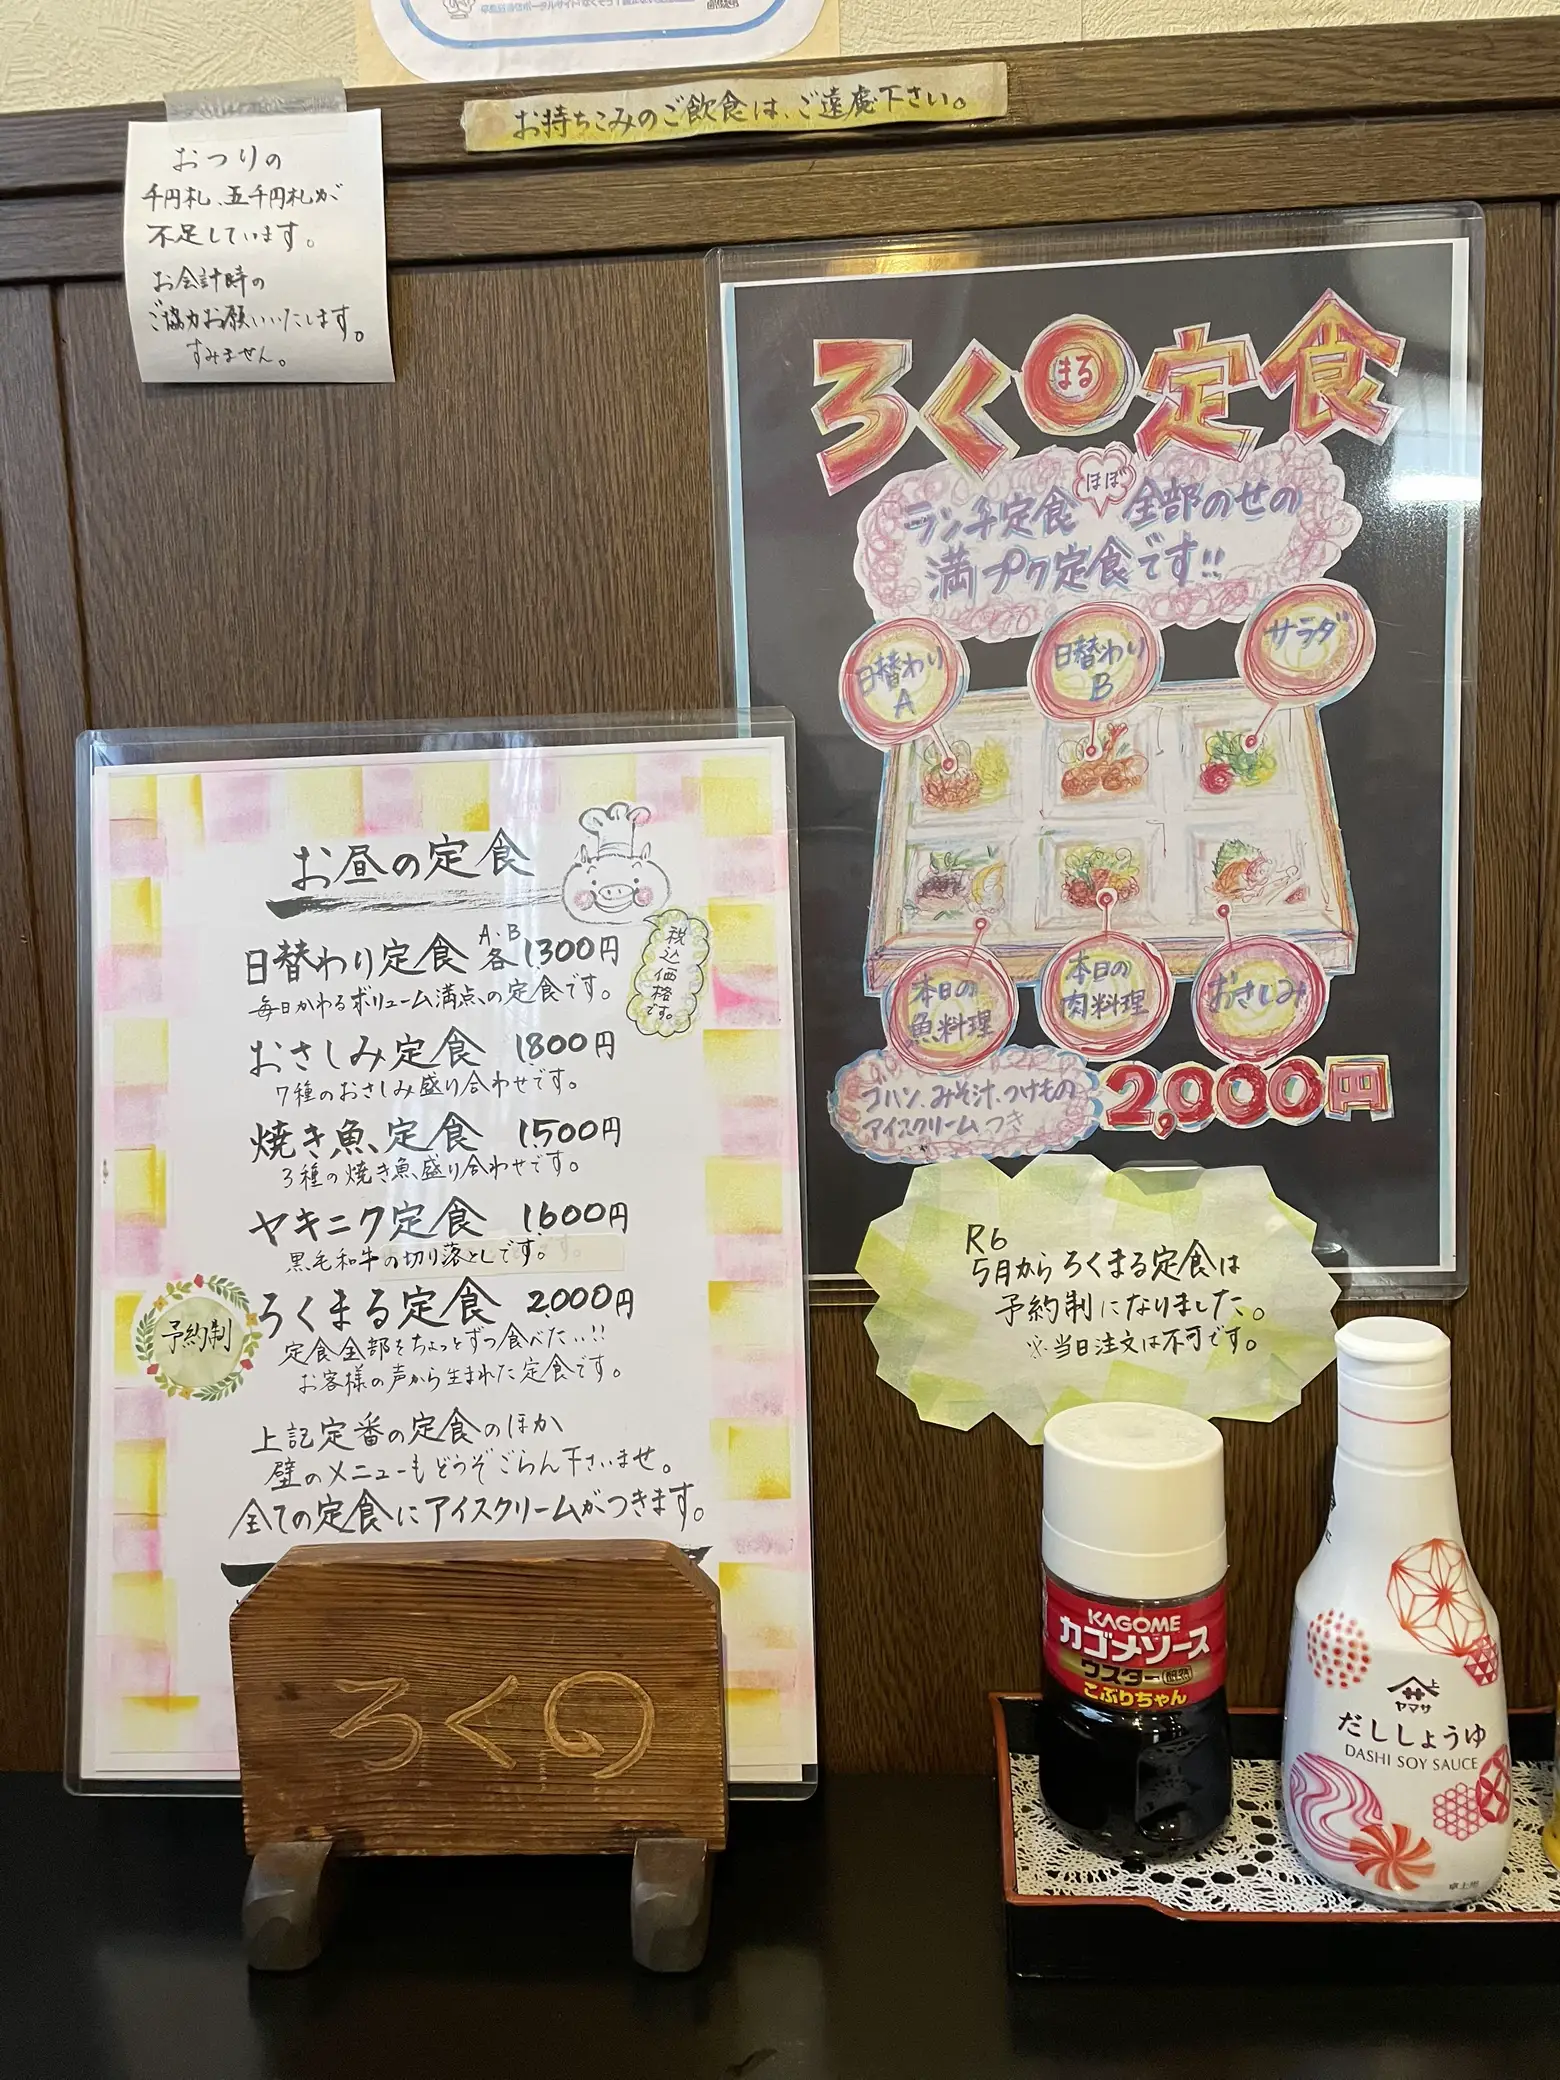 お持ちこみのご飲食は、ご遠慮下さい。
おつりの
千円札、五千円札が
不足しています。
お会計時の
ご協力お願いいたします。
すみません。
ろくまる定食
ランチ定食ほぼ全部のせの
満プク定食です!!
日替わり
A
日替わり
B
サラダ
本日の
魚料理
本日の
肉料理
おさしみ
ゴハン、みそ汁、つけもの
アイスクリームつき
2,000円
R6
5月からろくまる定食は
予約制になりました。
※当日注文は不可です。
お昼の定食
日替わり定食 A・B各1300円
毎日かわるボリューム満点の定食です。
税込価格です。
おさしみ定食 1800円
7種のおさしみ盛り合わせです。
焼き魚定食 1500円
3種の焼き魚盛り合わせです。
ヤキニク定食 1600円
黒毛和牛の切り落としです。
予約制
ろくまる定食 2,000円
定食全部をちょっとずつ食べたい!!
お客様の声から生まれた定食です。
上記定番の定食のほか
壁のメニューもどうぞごらん下さいませ。
全ての定食にアイスクリームがつきます。
ろくの
KAGOME
カゴメソース
ウスター 醸熟
こぶりちゃん
上
サ
ヤマサ
だししょうゆ
DASHI SOY SAUCE